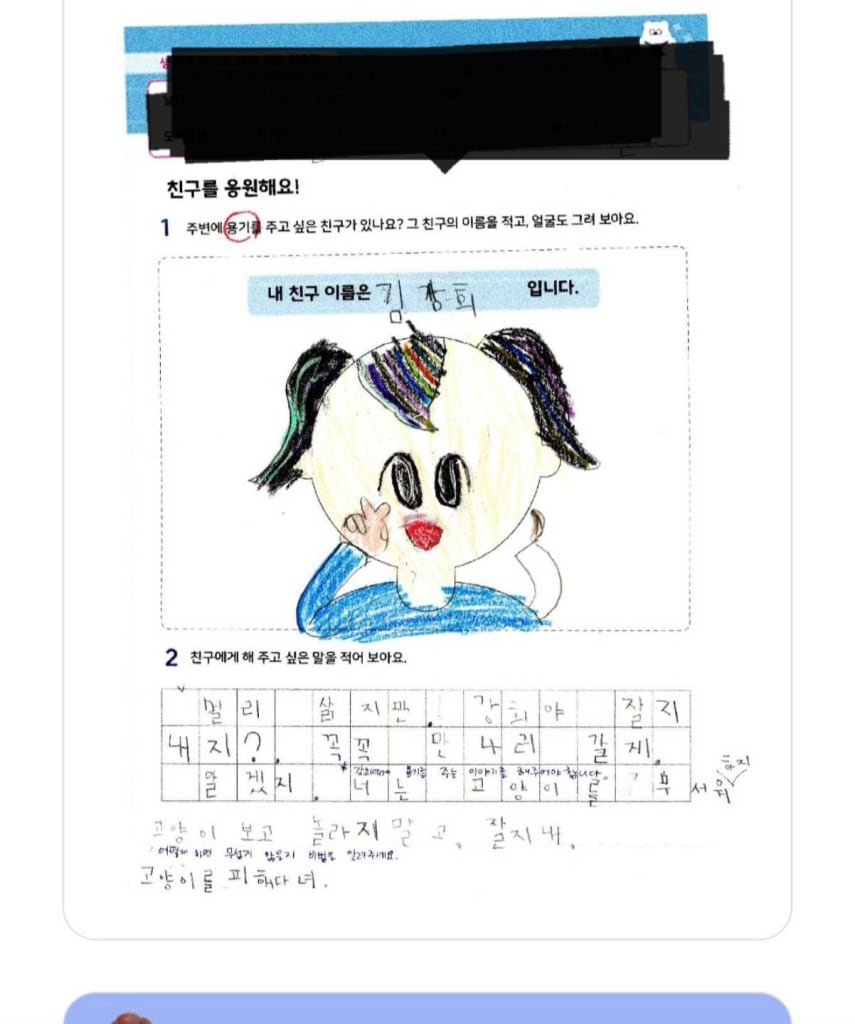 친구를 응원해요!
1 주변에 용기를 주고 싶은 친구가 있나요? 그 친구의 이름을 적고, 얼굴도 그려 보아요.
내 친구 이름은 김강희 입니다.
2 친구에게 해 주고 싶은 말을 적어 보아요.
멀리 삶지만. 강희야 잘지
내지? 꼭꼭 만나러 갈게.
강희에게 용기를 주는 이야기를 해주어야 합니다
알겠지. 너는 고양이를 무서워
하지
고양이 보고 놀라지 말고, 잘지내.
어떻게 하면 무섭지 않은지 비법을 알려주세요.
고양이를 피해다녀.